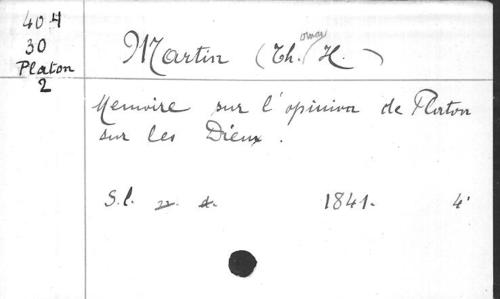 40.4
30
Platon
2
Martin (Th. H.)
omas
Memoire sur l'opinion de Platon
sur les Dieux.
S.l. 1841. 4'